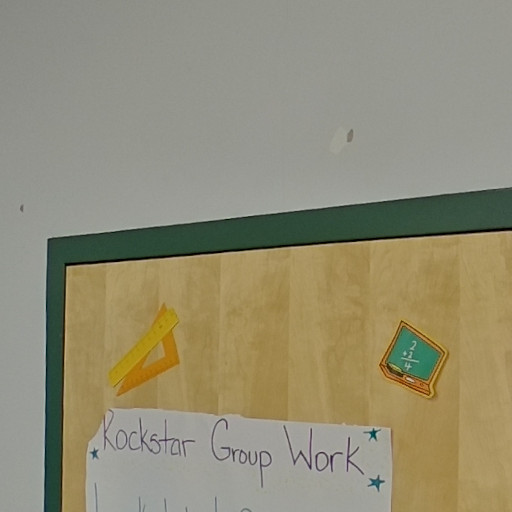 2
+2
4
Rockstar Group Work